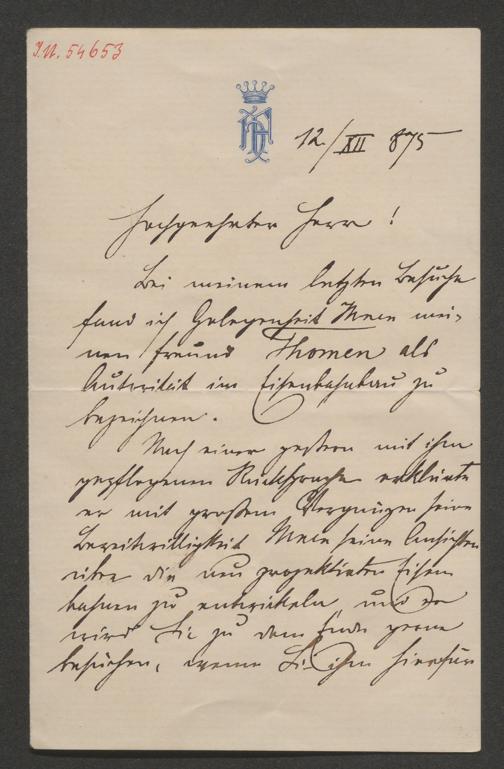 I.N. 54653
12/XII 875
Hochgeehrter Herr!
Bei meinem letzten Besuche
fand ich Gelegenheit Ihnen mei-
nen Freund Thomen als
Autorität im Eisenbahnbau zu
bezeichnen.
Nach einer gestern mit ihm
gepflogenen Rücksprache erklärte
er mit großem Vergnügen seine
Bereitwilligkeit Ihnen seine Ansichten
über die neu projektirten Eisen
bahnen zu entwickeln, und er
wird Sie zu dem Ende gerne
besuchen, wenn Sie ihm hierfür